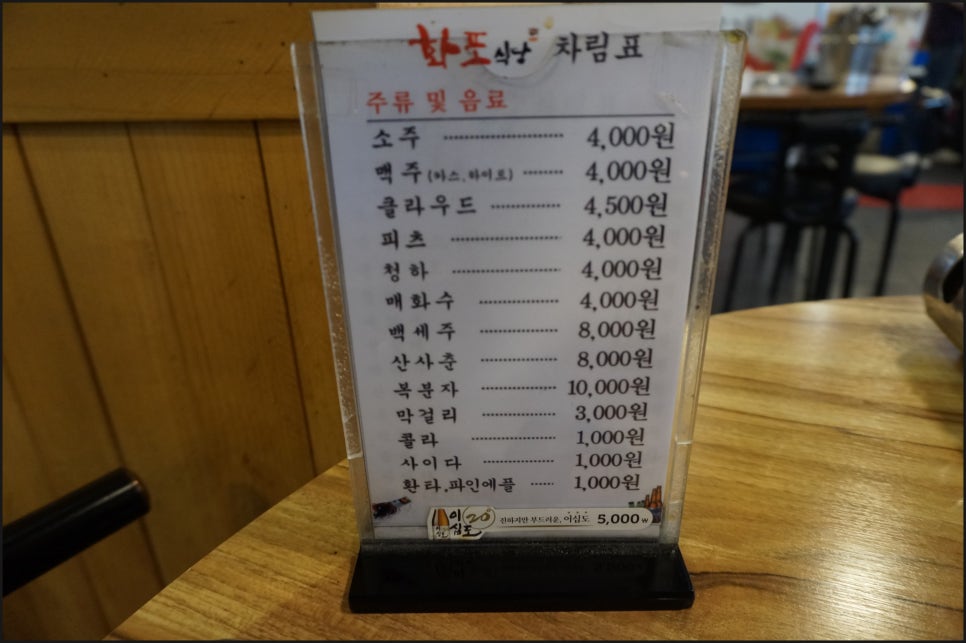 화포식당 차림표
주류 및 음료
소주 4,000원
맥주(카스,하이트) 4,000원
클라우드 4,500원
피츠 4,000원
청하 4,000원
매화수 4,000원
백세주 8,000원
산사춘 8,000원
복분자 10,000원
막걸리 3,000원
콜라 1,000원
사이다 1,000원
환타,파인애플 1,000원
이십도 20 진하지만 부드러운, 이십도 5,000w